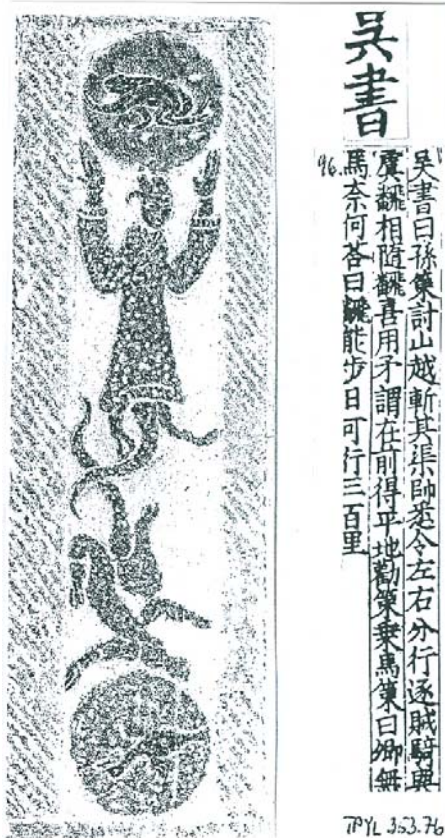 吳書
吳書曰孫策討山越斬其渠帥悉令左右分行逐賊騎與
虞飜相隨飜善用矛謂在前得平地勸策乗馬策曰卿無
馬奈何荅曰飜能步日可行三百里
96.
TPYL 353.7b